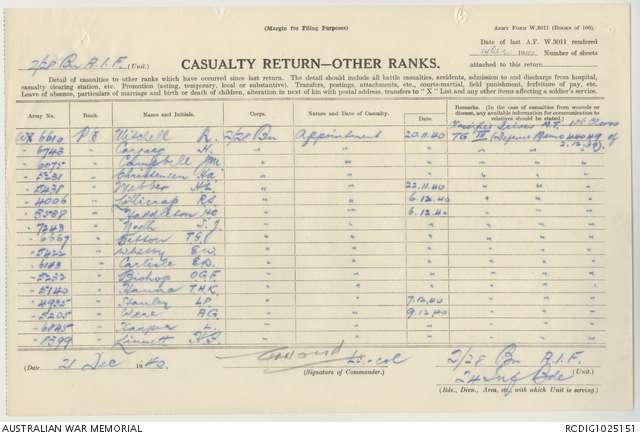 (Margin for Filing Purposes)
ARMY FORM W.3011 (Books of 100).
Date of last A.F. W.3011 rendered
Number of sheets
attached to this return
2/28 Bn A.I.F. (Unit.)
CASUALTY RETURN—OTHER RANKS.
Detail of casualties to other ranks which have occurred since last return. The detail should include all battle casualties, accidents, admission to and discharge from hospital,
casualty clearing station, etc. Promotion (acting, temporary, local or substantive). Transfers, postings, attachments, etc., courts-martial, field punishment, forfeiture of pay, etc.
Leave of absence, particulars of marriage and birth of children, alteration in next of kin with postal address, transfers to "X" List and any other items affecting a soldier's service.
Army No. Rank. Name and Initials. Corps. Nature and Date of Casualty. Date. Remarks. (In the case of casualties from wounds or disease, any available information for communication to relatives should be stated.)
WX 6610 Mitchell R. 2/28 Bn Appointment 20.11.40
" 6743 " H. " " "
" " Campbell JM " " "
" 5231 " Christensen Ha " " "
" 5438 " Webber HL " " 22.11.40
" 4006 " Lillicrap RS " " 6.12.40
" " HC " " 6.12.40
" 7243 " Nash S.J. " " "
" " TG " " "
" 5422 " EW " " "
" 6143 " Carlisle " " "
" 5232 " Bishop O.G.F. " " "
" 5140 " Hanna T.H.K. " " "
" 4935 " Stanley LP " " 7.12.40
" 5205 " Were AG " " 9.12.40
" 6845 " L. " " "
" " Linnett " " "
(Date 21 Dec 1940.) Lt-col
(Signature of Commander.)
2/28 Bn A.I.F.
(Unit.)
24 Inf Bde
(Bde., Divn., Area, etc., with which Unit is serving.)
AUSTRALIAN WAR MEMORIAL
RCDIG1025151